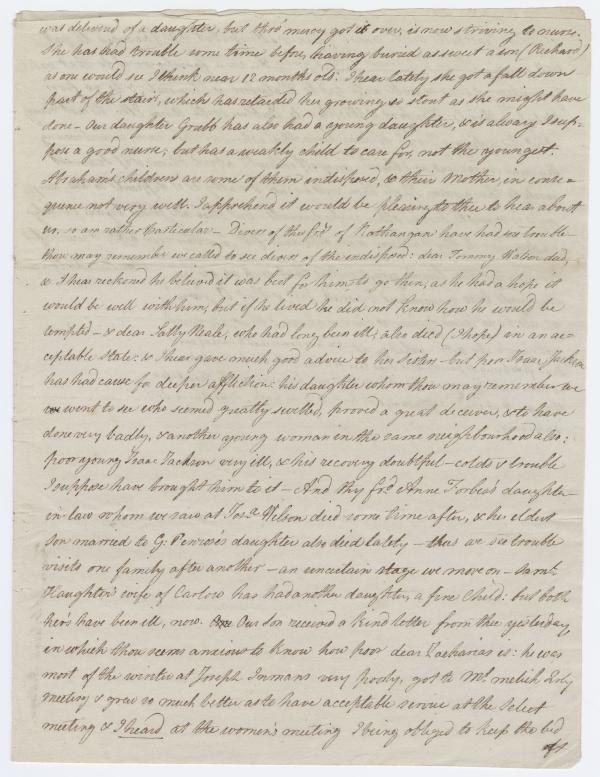 was deliverd of a daughter, but thro' mercy got it over, is now striving to nurse.
She has had trouble some time before, having buried as sweet a son (Richard)
as one would see I think near 12 months old: I hear lately she got a fall down
part of the stairs, which has retarded her growing so stout as she might have
done – Our daughter Grubb has also had a young daughter, & is always I sup-
pose a good nurse; but has a weakly child to care for, not the youngest.
Abraham's children are some of them indisposed, & their Mother, in conse-
quence not very well. I apprehend it would be pleasing to thee to hear about
us, so am rather Particular – Divers of the frds. of Rathangan have had sore trouble –
thou may remember we called to see divers of the indisposed: dear Tommy Watson died,
& I hear reckoned he believed it was best for him to go then; as he had a hope it
would be well with him, but if he lived he did not know how he would be
tempted – & dear Sally Neale, who had long been ill, also died (I hope) in an ac-
ceptable state: & I hear gave much good advice to her sisters – but poor Isaac Jackson
has had cause for deeper affliction: his daughter whom thou may remember we
went to see who seemed greatly swelled, proved a great deceiver, & to have
done very badly, & another young woman in the same neighbourhood also:
poor young Isaac Jackson very ill, & his recovery doubtful – colds & trouble
I suppose have brought him to it – And thy frd. Anne Forbes's daughter-
in-law whom we saw at Josa. Wilson died some time after, & her eldest
son married to G: Penrose's daughter also died lately – thus we see trouble
visits one family after another – an uncertain stage we move on – Saml.
Haughton's wife of Carlow has had another daughter, a fine child: but both
hers have been ill, now. Our son received a kind letter from thee yesterday,
in which thou seems anxious to know how poor dear Zacharias is: he was
most of the winter at Joseph Inmans very poorly, got to Mt. melick Qrly
meeting & grew so much better as to have acceptable service at the Select
meeting & I heard at the women's meeting I being obliged to keep the bed